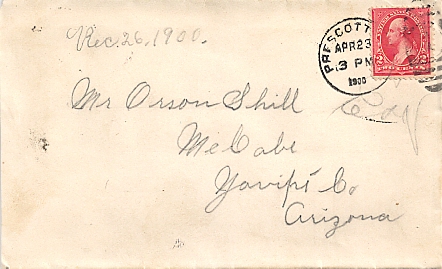 Rec. 26, 1900.
PRESCOTT
APR 23
3 PM
1900
2 2
Mr Orson Shill
McCabe
Yavipi Co,
Arizona